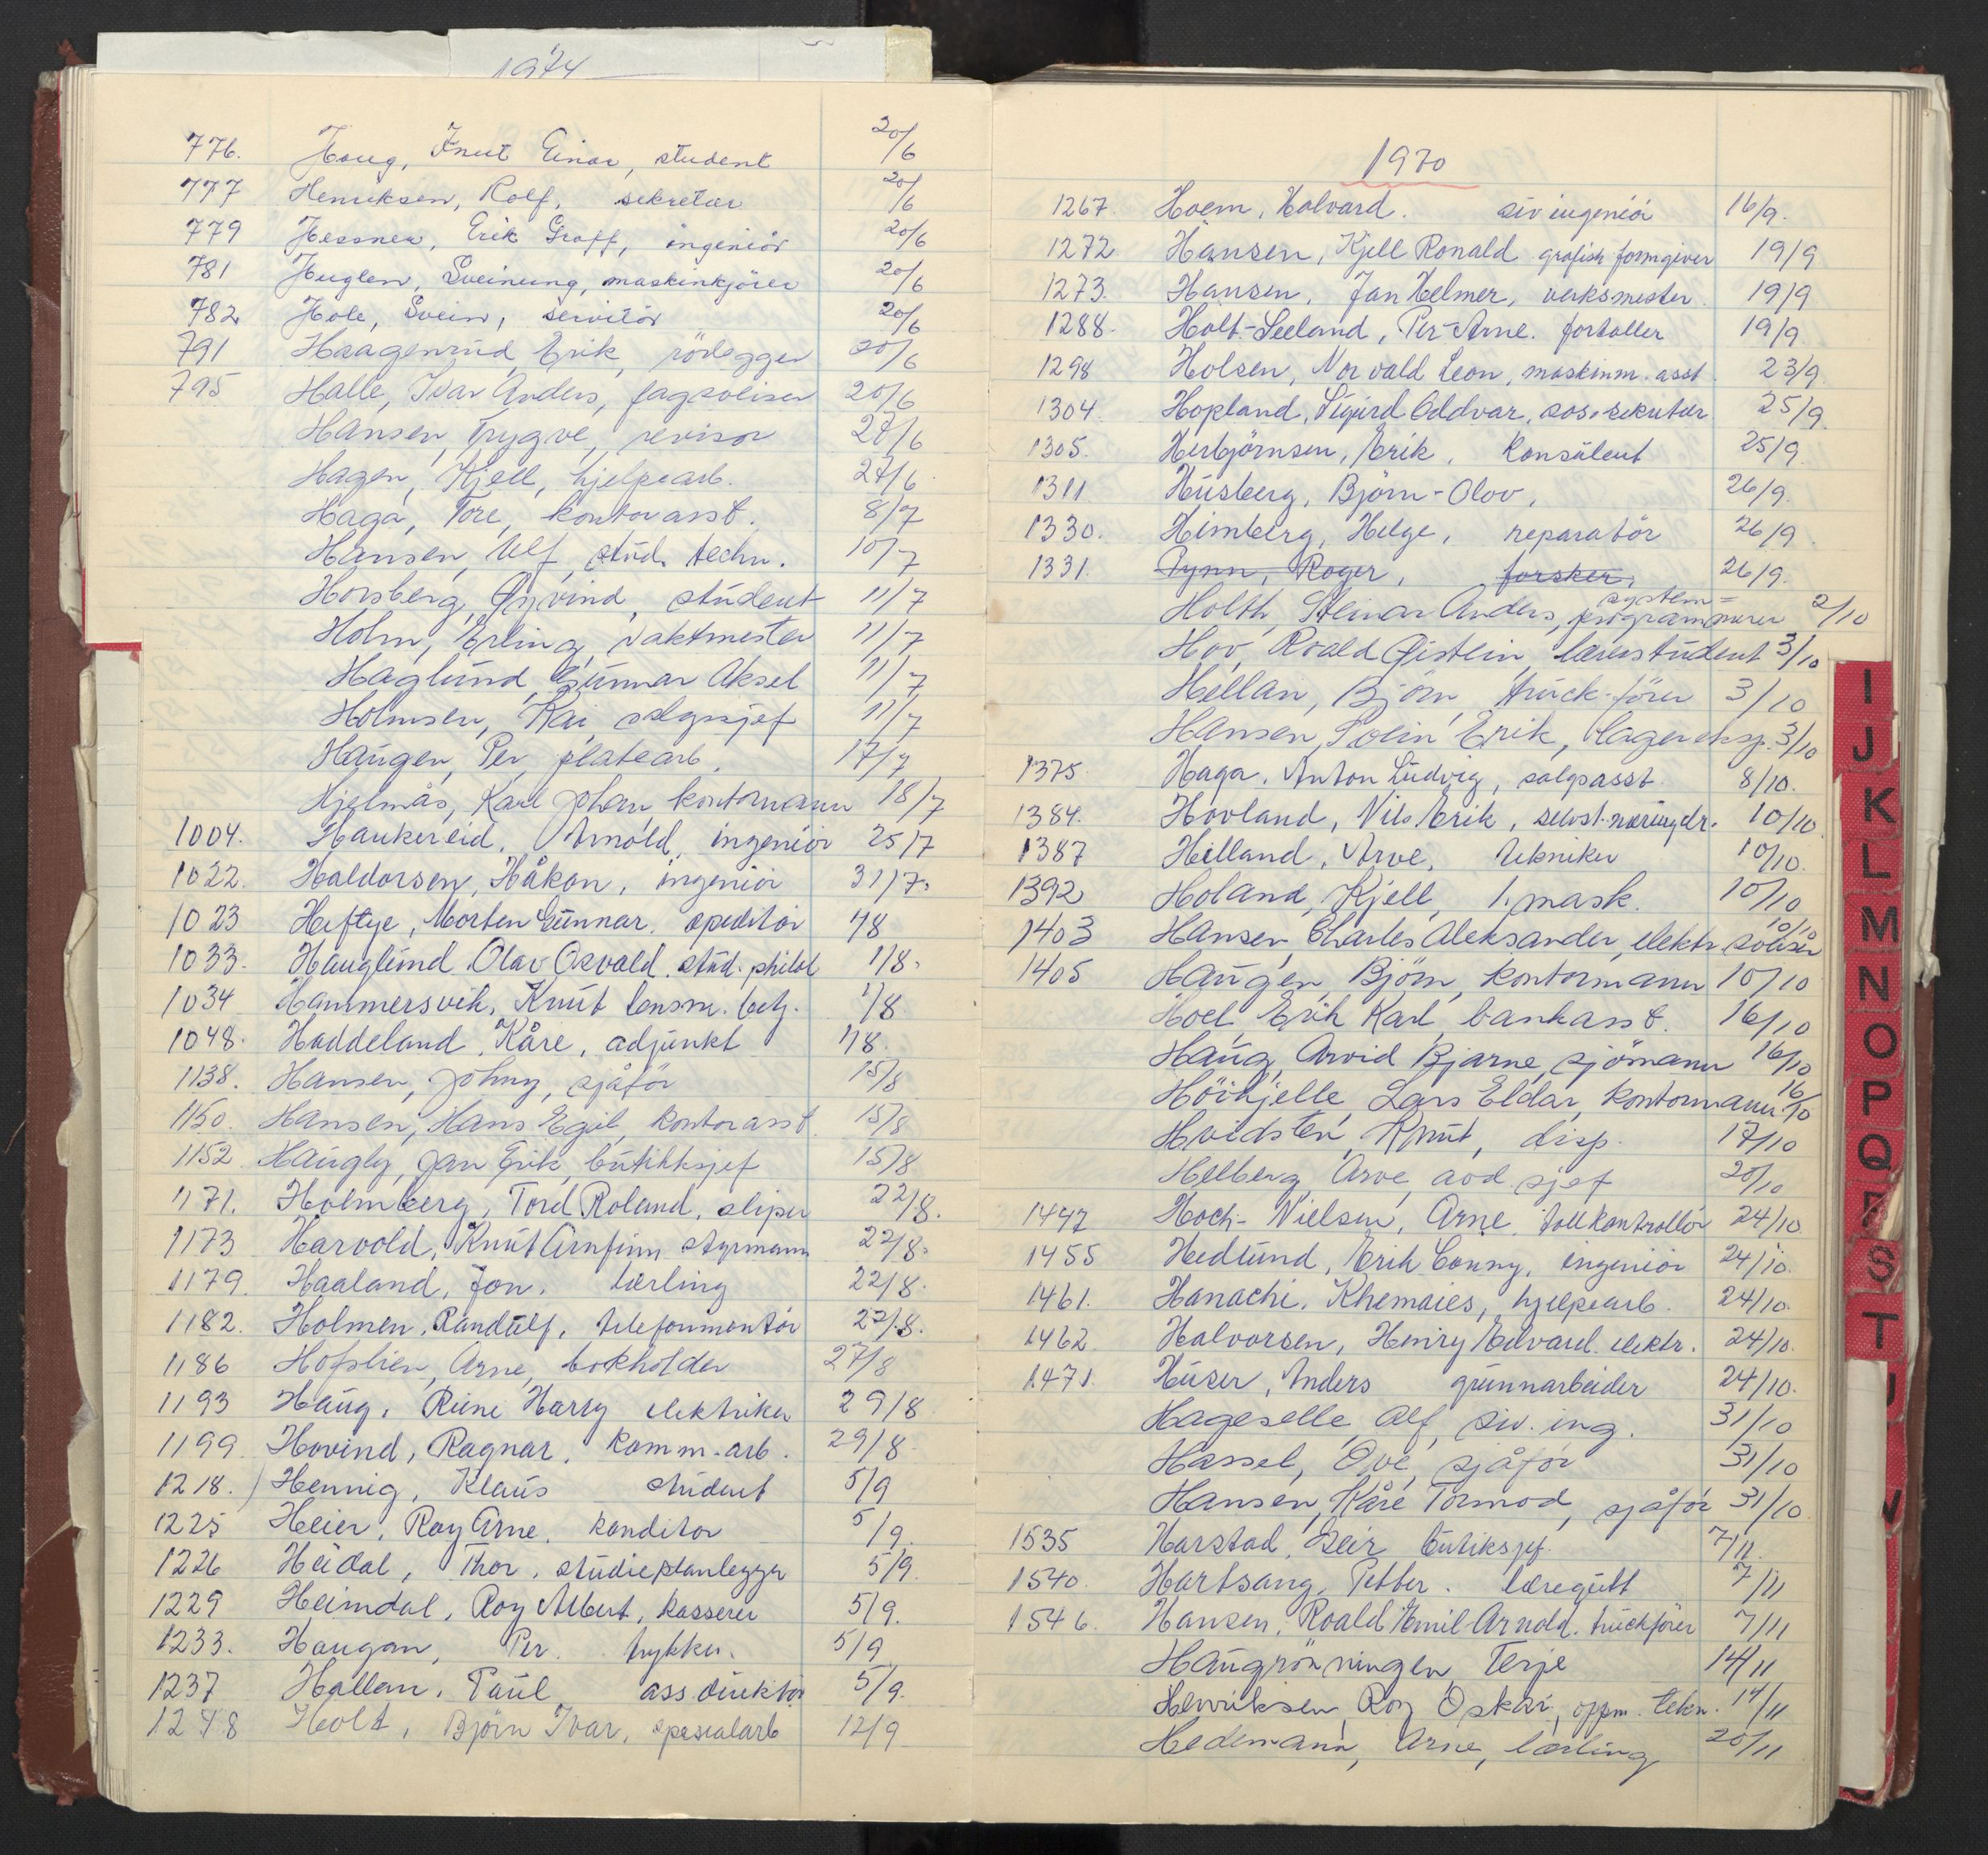 1974
776. Haug, Knut Einar, student 20/6
777 Henriksen, Rolf, sekretær 20/6
779 Hessner, Erik Graff, ingeniör 20/6
781 Huglen, Sveinung, maskinkjörer 20/6
782 Hole, Svein, servitör 20/6
791 Haagenrud, Erik, rörlegger 20/6
795 Halle, Ivar Anders, fagsoliser 20/6
Hansen, Trygve, revisor 27/6
Hagen, Kjell, hjelpearb. 27/6
Haga, Tore, kontorasst. 8/7
Hansen, Ulf, stud. techn. 10/7
Horsberg, Øyvind, student 11/7
Holm, Erling, vaktmester 11/7
Haglund, Gunnar Aksel 11/7
Holmsen, Kai, salgssjef 11/7
Haugen, Per, platearb. 17/7
Hjelmås, Karl Johan, kontormann 18/7
1004. Haukereid, Arnold, ingeniör 25/7
1022. Haldorsen, Håkon, ingeniör 31/7.
1023 Heftye, Morten Gunnar. speditör 1/8
1033. Hauglund, Olav Osvald. stud. philol 1/8.
1034 Hammersvik, Knut lensm. betj. 1/8.
1048. Haddeland, Kåre, adjunkt 1/8.
1138. Hansen, Johny, sjåför 15/8
1150. Hansen, Hans Egil, kontorasst. 15/8
1152 Haugly, Jan Erik, butikksjef 15/8
1171. Holmberg, Tord Roland, sliper 22/8.
1173 Harvold, Knut Arnfinn styrmann 22/8.
1179. Haaland, Jon. lærling 22/8.
1182. Holmen, Randulf, telefonmontör 22/8.
1186 Hofslien, Arne, bokholder 27/8
1193 Haug, Rune Harry elektriker 29/8
1199. Hovind, Ragnar, komm-arb. 29/8
1218. ) Hennig, Klaus student 5/9
1225 Heier, Roy Arne. konditor 5/9.
1226 Heidal, Thor, studieplanlegger 5/9.
1229 Heimdal, Roy Albert, kasserer 5/9.
1233. Haugan, Per. trykker. 5/9
1237 Hallan, Paul ass direktör 5/9.
1248 Holt, Björn Ivar, spesialarb 12/9
1970
1267. Hoem, Halvard. siv ingeniör 16/9.
1272 Hansen, Kjell Ronald grafisk formgiver 19/9
1273. Hansen, Jan Helmer, verksmester. 19/9
1288. Holt-Seeland, Per-Arne. fortoller 19/9.
1298 Holsen, Norvald Leon, maskinm. asst. 23/9.
1304. Hopland, Sigurd Oddvar, sos.-sekretær 25/9.
1305. Herbjörnsen, Erik, Konsulent 25/9.
1311 Husberg, Björn-Olov, 26/9.
1330. Himberg, Helge, reparatör 26/9.
1331. Pynn, Roger, forsker, 26/9.
Holth, Steinar Anders, system=programmerer 2/10
Hov, Roald Øistein, lærerstudent 3/10
Hellan, Björn, truck-förer 3/10
Hansen, Svein Erik, lagereksp. 3/10
1375. Haga, Anton Ludvig, salgsasst. 8/10.
1384. Hovland, Nils Erik, selvst. næringdr. 10/10.
1387 Helland, Arve, tekniker 10/10.
1392 Holand, Kjell, 1. mask. 10/10
1403 Hansen, Charles Aleksander, elektr. soliser 10/10
1405 Haugen, Björn, kontormann 10/10
Hoel, Erik Karl, bankasst. 16/10
Haug, Arvid Bjarne, sjömann 16/10
Höihjelle, Lars Eldar, kontormann 16/10
Hvidsten, Knut, disp. 17/10
Helberg, Arve, avd. sjef 20/10
1447 Hoch-Nielsen, Arne, tollkontrollör 24/10
1455 Hedlund, Erik Conny, ingeniör 24/10.
1461. Hanachi, Khemaies, hjelpearb. 24/10.
1462 Halvorsen, Henry Edvard. elektr. 24/10.
1471. Huser, Anders grunnarbeider 24/10.
Hageselle, Alf, siv. ing. 31/10
Hassel, Ove, sjåför 31/10
Hansen, Kåre Tormod, sjåför 31/10
1535 Harstad, Geir butiksjef. 7/11.
1540. Hartsang, Petter. læregutt 7/11
1546. Hansen, Roald Emil-Arnold. truckförer 7/11
Haugrönningen, Terje 14/11
Henriksen, Roy Oskar, oppm. tekn. 14/11
Hedemann, Arne, lærling 20/11
I
J
K
L
M
N
O
P
Q
R
S
T
U
V